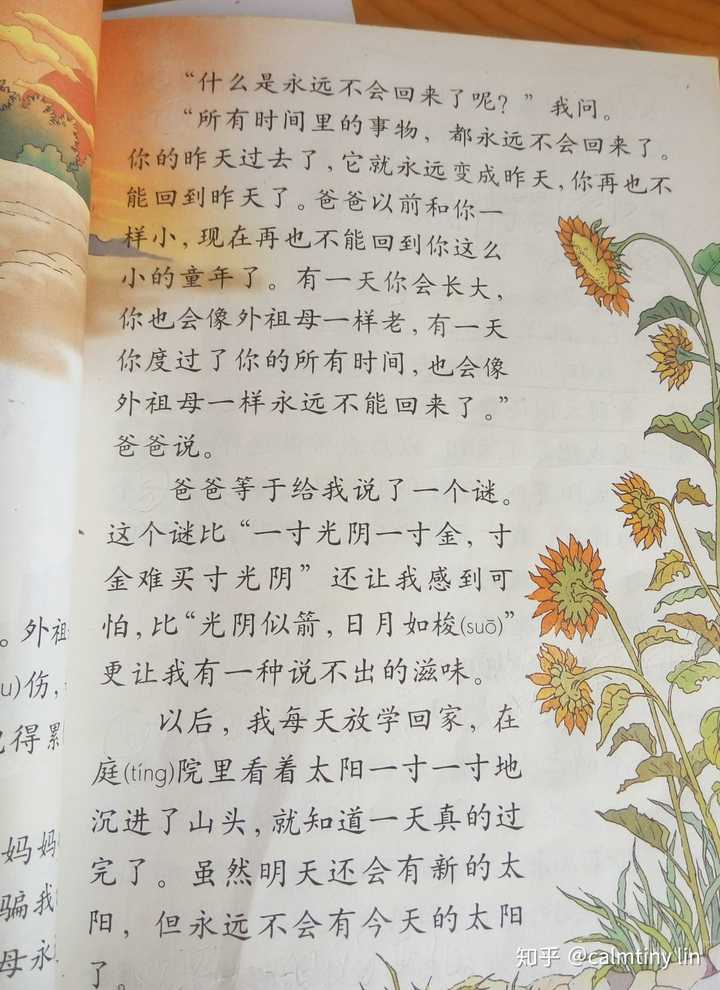 “什么是永远不会回来了呢？”我问。
“所有时间里的事物，都永远不会回来了。
你的昨天过去了，它就永远变成昨天，你再也不
能回到昨天了。爸爸以前和你一
样小，现在再也不能回到你这么
小的童年了。有一天你会长大，
你也会像外祖母一样老，有一天
你度过了你的所有时间，也会像
外祖母一样永远不能回来了。”
爸爸说。
爸爸等于给我说了一个谜。
这个谜比“一寸光阴一寸金，寸
金难买寸光阴”还让我感到可
怕，比“光阴似箭，日月如梭(suō)”
更让我有一种说不出的滋味。
以后，我每天放学回家，在
庭(tíng)院里看着太阳一寸一寸地
沉进了山头，就知道一天真的过
完了。虽然明天还会有新的太
阳，但永远不会有今天的太阳
了。
。外祖
u)伤，
得累
妈妈
骗我
母永
知乎 @calmtiny lin